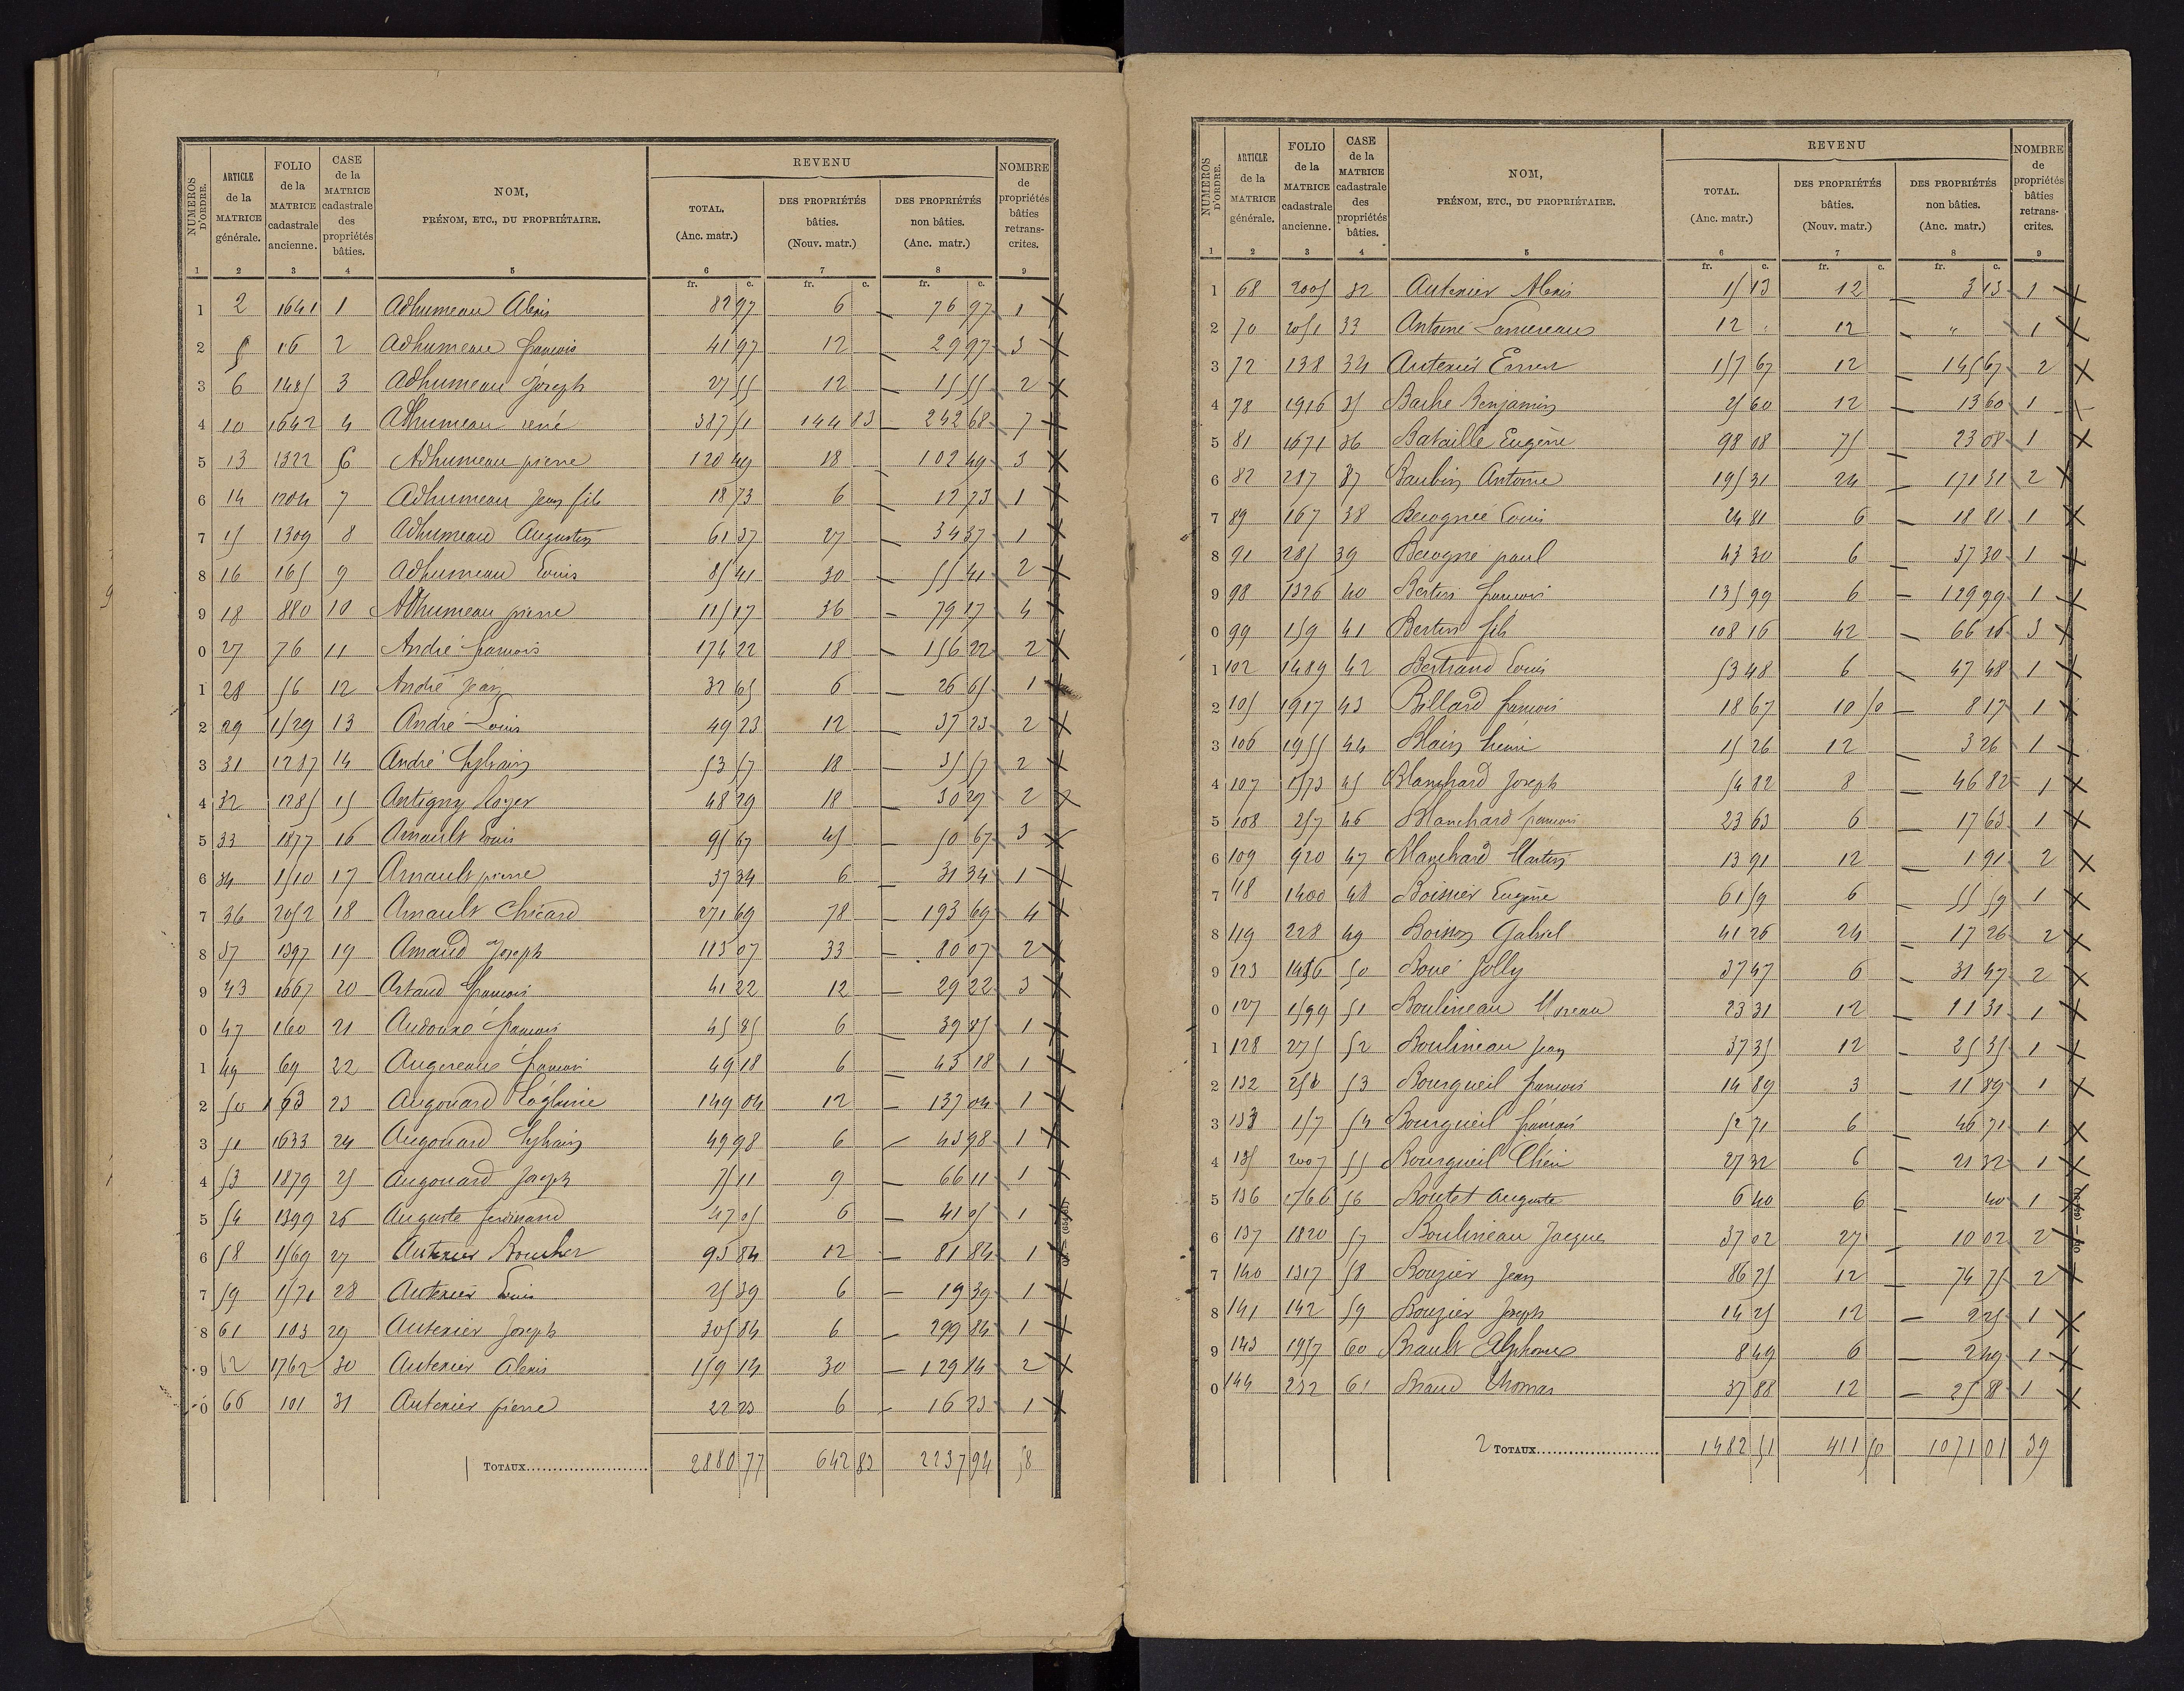 NUMEROS D'ORDRE. | ARTICLE de la MATRICE générale. | FOLIO de la MATRICE cadastrale ancienne. | CASE de la MATRICE cadastrale des propriétés bâties. | NOM, PRÉNOM, ETC., DU PROPRIÉTAIRE. | REVENU | NOMBRE de propriétés bâties retranscrites.
TOTAL. (Anc. matr.) | DES PROPRIÉTÉS bâties. (Nouv. matr.) | DES PROPRIÉTÉS non bâties. (Anc. matr.)
1 2 3 4 5 6 7 8 9
fr. c. fr. c. fr. c.
1 2 1641 1 Adhumeau Alexis 82 97 6 — 76 97 1 X
2 5 16 2 Adhumeau françois 41 97 12 — 29 97 3 X
3 6 1485 3 Adhumeau Joseph 27 55 12 — 15 55 2 X
4 10 1642 4 Adhumeau rené 387 51 144 83 — 242 68 7 X
5 13 1322 6 Adhumeau pierre 120 49 18 — 102 49 3 X
6 14 1204 7 Adhumeau Jean fils 18 73 6 — 12 73 1 X
7 15 1309 8 Adhumeau Augustin 61 37 27 — 34 37 1 X
8 16 165 9 Adhumeau Louis 85 41 30 — 55 41 2 X
9 18 880 10 Adhumeau pierre 115 17 36 — 79 17 4 X
0 27 76 11 André françois 174 22 18 — 156 22 2 X
1 28 56 12 André Jean 32 65 6 — 26 65 1 X
2 29 1529 13 André Louis 49 23 12 — 37 23 2 X
3 31 1287 14 André Sylvain 53 57 18 — 35 57 2 X
4 32 1285 15 Antigny Roger 48 29 18 — 30 29 2 X
5 33 1877 16 Arnault Louis 95 67 45 — 50 67 3 X
6 34 1510 17 Arnault pierre 37 34 6 — 31 34 1 X
7 36 2052 18 Arnault Chicard 271 69 78 — 193 69 4 X
8 37 1397 19 Arnaud Joseph 113 07 33 — 80 07 2 X
9 43 1667 20 Artaud françois 41 22 12 — 29 22 3 X
0 47 160 21 Audouxé françois 45 85 6 — 39 85 1 X
1 49 69 22 Augereau françois 49 18 6 — 43 18 1 X
2 50 163 23 Augouard 149 04 12 — 137 04 1 X
3 51 1633 24 Augouard Sylvain 49 98 6 — 43 98 1 X
4 53 1879 25 Augouard Joseph 75 11 9 — 66 11 1 X
5 54 1399 26 Auguste ferdinand 47 05 6 — 41 05 1 X
6 58 1569 27 Autexier Boucher 93 84 12 — 81 84 1 X
7 59 1571 28 Autexier Louis 25 39 6 — 19 39 1 X
8 61 103 29 Autexier Joseph 305 84 6 — 299 84 1 X
9 62 1762 30 Autexier Alexis 159 14 30 — 129 14 2 X
0 66 101 31 Autexier pierre 22 23 6 — 16 23 1 X
1 TOTAUX 2880 77 642 83 2237 94 58
NUMEROS D'ORDRE. | ARTICLE de la MATRICE générale. | FOLIO de la MATRICE cadastrale ancienne. | CASE de la MATRICE cadastrale des propriétés bâties. | NOM, PRÉNOM, ETC., DU PROPRIÉTAIRE. | REVENU | NOMBRE de propriétés bâties retranscrites.
TOTAL. (Anc. matr.) | DES PROPRIÉTÉS bâties. (Nouv. matr.) | DES PROPRIÉTÉS non bâties. (Anc. matr.)
1 2 3 4 5 6 7 8 9
fr. c. fr. c. fr. c.
1 68 2005 32 Autexier Alexis 15 13 12 — 3 13 1 X
2 70 2051 33 Antoine Lancereau 12 " 12 — " 1 X
3 72 138 34 Autexier 157 67 12 — 145 67 2 X
4 78 1916 35 Barbe Benjamin 25 60 12 — 13 60 1 X
5 81 1671 36 Bataille Eugène 98 08 75 — 23 08 1 X
6 82 217 37 Baubin Antoine 195 31 24 — 171 31 2 X
7 89 167 38 Becognée Louis 24 81 6 — 18 81 1 X
8 91 285 39 Becogné paul 43 30 6 — 37 30 1 X
9 98 1326 40 Bertin françois 135 99 6 — 129 99 1 X
0 99 159 41 Bertin fils 108 16 42 — 66 16 3 X
1 102 1489 42 Bertrand Louis 53 48 6 — 47 48 1 X
2 105 1917 43 Billard françois 18 67 10 50 — 8 17 1 X
3 106 1955 44 Blain henri 15 26 12 — 3 26 1 X
4 107 1573 45 Blanchard Joseph 54 82 8 — 46 82 1 X
5 108 257 46 Blanchard françois 23 63 6 — 17 63 1 X
6 109 920 47 Blanchard Martin 13 91 12 — 1 91 2 X
7 118 1400 48 Boisnier Eugène 61 59 6 — 55 59 1 X
8 119 228 49 Boisson Gabriel 41 26 24 — 17 26 2 X
9 123 1436 50 Boué Jolly 37 47 6 — 31 47 2 X
0 127 1599 51 Boulineau Moreau 23 31 12 — 11 31 1 X
1 128 275 52 Boulineau Jean 37 35 12 — 25 35 1 X
2 132 53 Bourgueil françois 14 89 3 — 11 89 1 X
3 133 157 54 Bourgueil françois 52 71 6 — 46 71 1 X
4 135 2007 55 Bourgueil 27 32 6 — 21 32 1 X
5 136 1766 56 Boutet Auguste 6 40 6 — 40 1 X
6 137 1820 57 Boulineau Jacques 37 02 27 — 10 02 2 X
7 140 1317 58 Bouzier Jean 86 75 12 — 74 75 2 X
8 141 142 59 Bouzier Joseph 14 25 12 — 2 25 1 X
9 143 1957 60 Brault Alphonse 8 49 6 — 2 49 1 X
0 144 232 61 Braud Thomas 37 88 12 — 25 88 1 X
2 TOTAUX 1482 51 411 50 1071 01 39